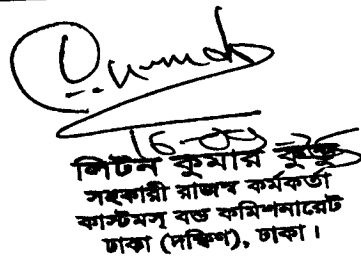 লিটন কুমার কুন্ডু
সহকারী রাজস্ব কর্মকর্তা
কাস্টমস্ বন্ড কমিশনারেট
ঢাকা (দক্ষিণ), ঢাকা।